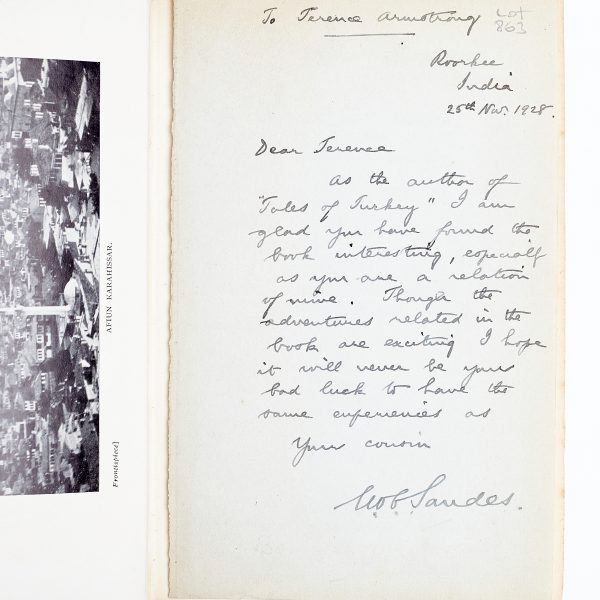 AFIUN KARAHISSAR.
Frontispiece]
To Terence Armstrong
Lot
863
Roorkee
India
25th Nov. 1928.
Dear Terence
As the author of
"Tales of Turkey" I am
glad you have found the
book interesting, especially
as you are a relation
of mine. Though the
adventures related in the
book are exciting I hope
it will never be your
bad luck to have the
same experiences as
Your cousin
Sandes.